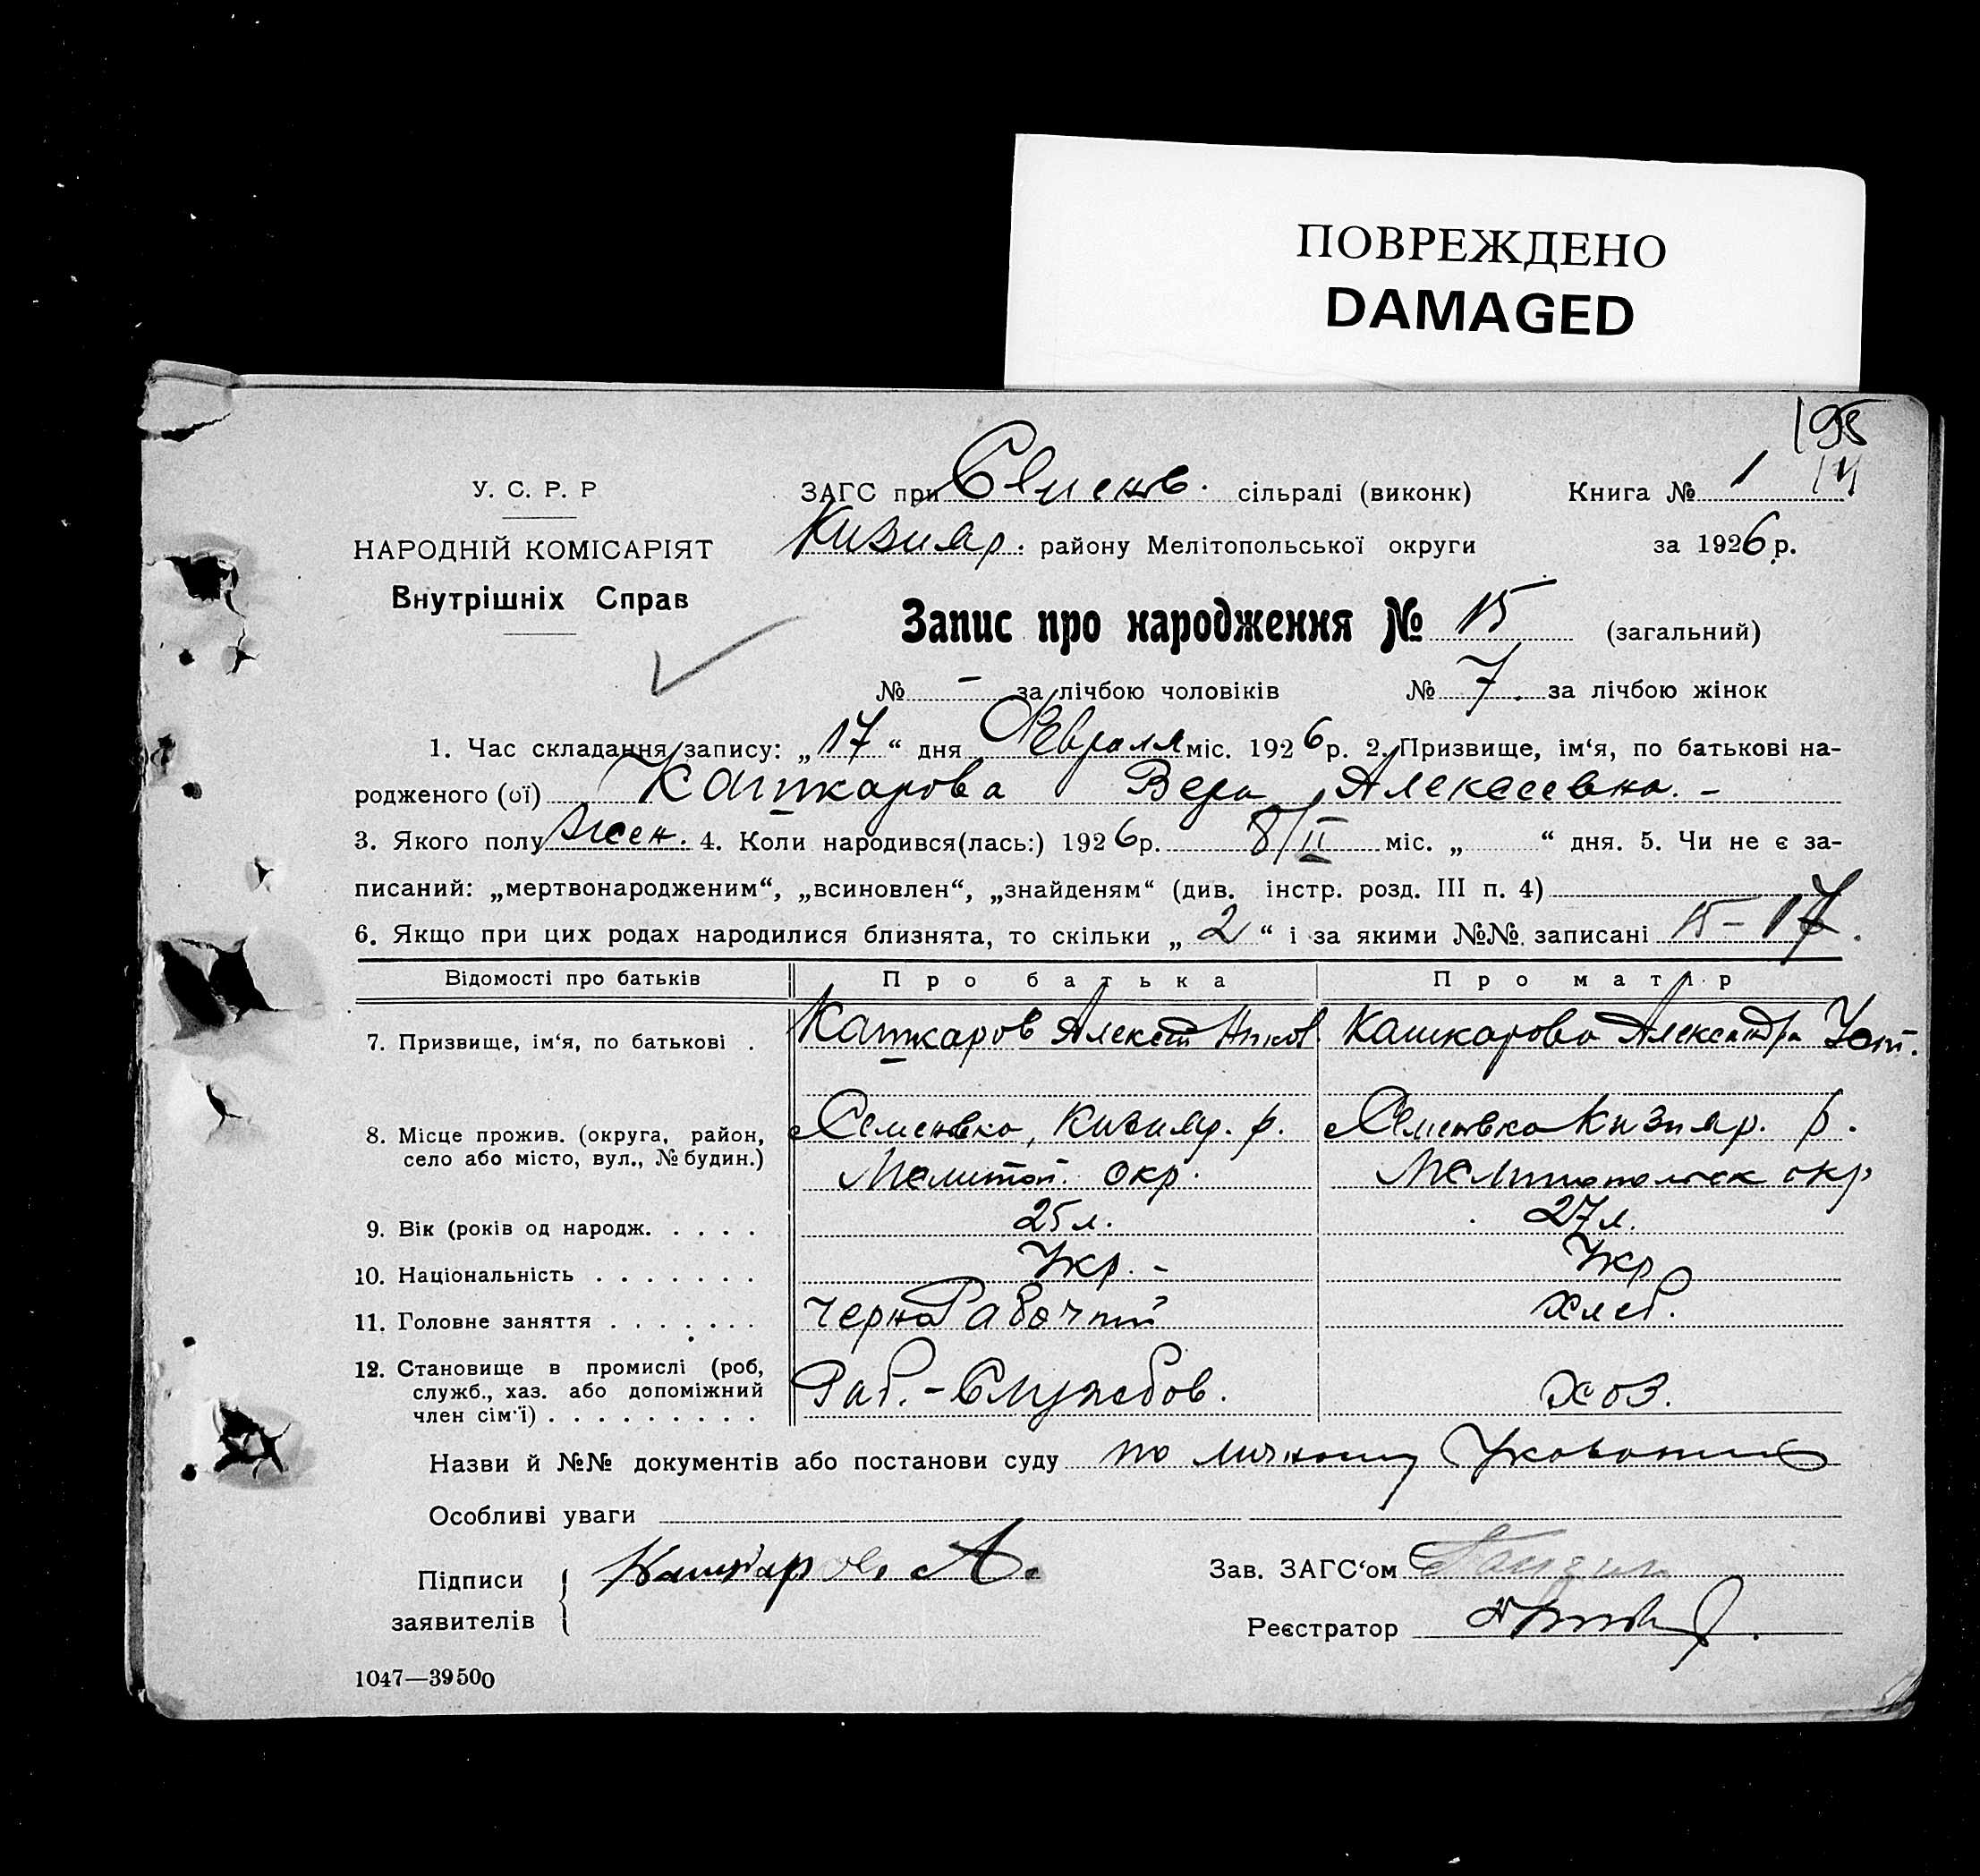 ПОВРЕЖДЕНО
DAMAGED
195
У. С. Р. Р
ЗАГС при Семенв. сільраді (виконк) Книга № 1
НАРОДНІЙ КОМІСАРІЯТ
Кизияр. району Мелітопольської округи за 1926 р.
Внутрішніх Справ
Запис про народження № 15 (загальний)
№ – за лічбою чоловіків № 7. за лічбою жінок
1. Час складання запису: „17“ дня Февраля міс. 1926 р. 2. Призвище, ім‘я, по батькові на-
родженого (ої) Кашкарова Вера Алексеевна. –
3. Якого полу жен. 4. Коли народився(лась:) 1926 р. 8/II міс. „ “ дня. 5. Чи не є за-
писаний: „мертвонародженим“, „всиновлен“, „знайденям“ (див. інстр. розд. III п. 4)
6. Якщо при цих родах народилися близнята, то скільки „2“ і за якими №№ записані 15–17.
Відомості про батьків Про батька Про матір
7. Призвище, ім‘я, по батькові . Кашкаров Алексей Кашкарова Александра
8. Місце прожив. (округа, район, Семеновка, Кизияр. р. Семеновка Кизияр. р.
село або місто, вул., № будин.) Мелитоп. окр. Мелитопольск окр
9. Вік (років од народж. . . . . 25 л. 27 л.
10. Національність . . . . . . . Укр. – Укр
11. Головне заняття . . . . . . . Чернорабочий Хлеб.
12. Становище в промислі (роб, Раб. – Служебов. Хоз.
служб., хаз. або допоміжний
член сім‘ї) . . . . . . . . .
Назви й №№ документів або постанови суду по личному
Особливі уваги
Підписи Кашкаров А. Зав. ЗАГС‘ом
заявителів Реєстратор
1047—39500